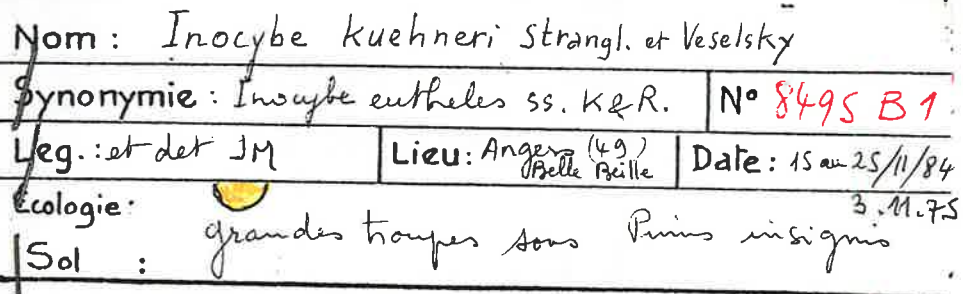 Nom : Inocybe kuehneri Strangl. et Veselsky
Synonymie : Inocybe eutheles ss. K & R. N° 8495 B 1
Leg. : et det JM Lieu : Angers (49) Belle Beille Date : 15 au 25/11/84
3.11.75
Ecologie :
grandes troupes sous Pinus insignis
Sol :